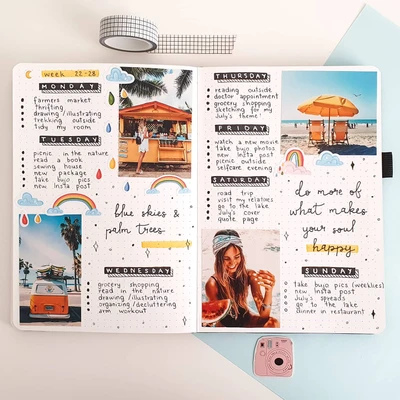 week 22-28
MONDAY
farmers market
thrifting
drawing/illustrating
trekking outside
tidy my room
TUESDAY
picnic in the nature
read a book
sewing house
new package
take bujo pics
new insta post
blue skies &
palm trees
WEDNESDAY
grocery shopping
read in the nature
drawing/illustrating
organizing/decluttering
arm workout
THURSDAY
reading outside
doctor appointment
grocery shopping
sketching for my
July's theme
FRIDAY
watch a new movie
take bujo photos
new insta post
picnic outside
selfcare evening
SATURDAY
road trip
visit my relatives
go to the lake
July's cover
quote page
do more of
what makes
your soul
happy
SUNDAY
take bujo pics (weeklies)
new insta post
July's spreads
go to the lake
dinner in restaurant